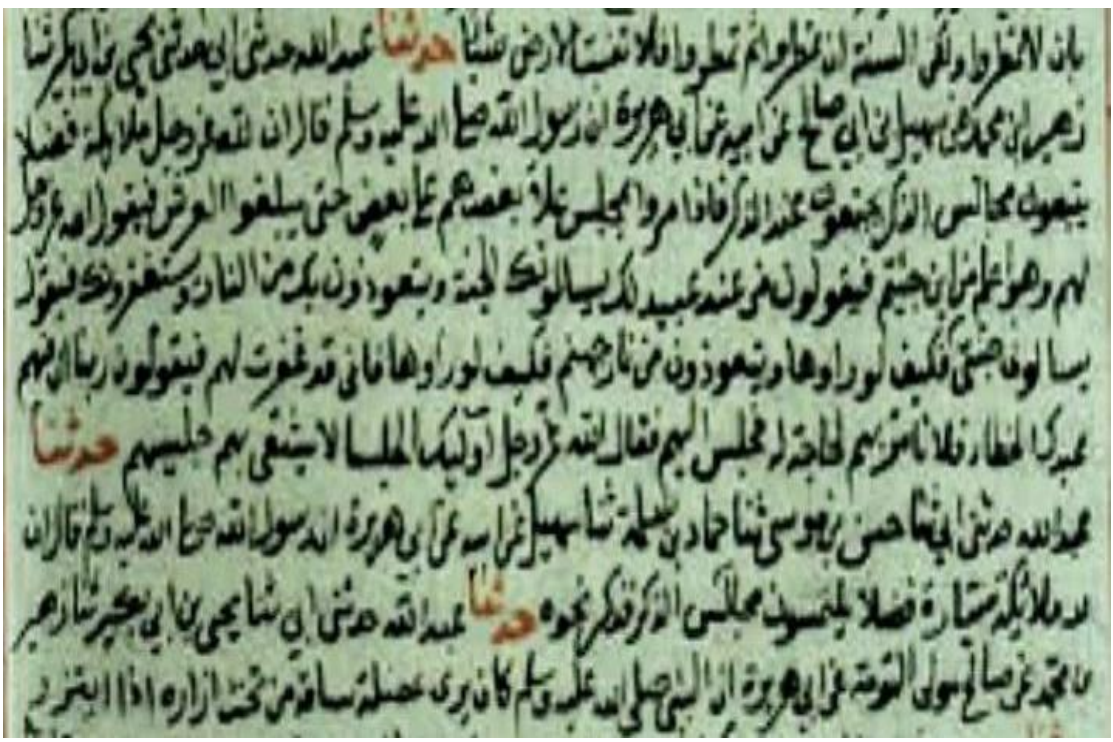 بان لا تمطروا ولكن السنة ان تمطروا ثم تمطروا فلا تنبت الارض شيئا حدثنا عبد الله حدثني ابي حدثني يحيى بن ابي بكير ثنا
زهير بن محمد عن سهيل بن ابي صالح عن ابيه عن ابي هريرة ان رسول الله صلى الله عليه وسلم قال ان لله عز وجل ملائكة فضلا
يتبعون مجالس الذكر يجتمعون عند الذكر فاذا مروا بمجلس علا بعضهم على بعض حتى يبلغوا العرش فيقول الله عز وجل
لهم وهو اعلم من اين جئتم فيقولون من عند عبيد لك يسالونك الجنة ويتعوذون بك من النار ويستغفرونك فيقول
يسالوني جنتي فكيف لو راوها ويتعوذون من نار جهنم فكيف لو راوها فاني قد غفرت لهم فيقولون ربنا ان فيهم
عبدك الخطاء فلانا مر بهم لحاجة له فجلس اليهم فقال الله عز وجل اوليك الجلسا لا يشقى بهم جليسهم حدثنا
عبد الله حدثني ابي ثنا حسن بن موسى ثنا حماد بن سلمة ثنا سهيل عن ابيه عن ابي هريرة ان رسول الله صلى الله عليه وسلم قال ان
لله ملائكة سيارة فضلا يلتمسون مجالس الذكر فذكر نحوه حدثنا عبد الله حدثني ابي ثنا يحيى بن ابي بكير ثنا زهير
بن محمد عن صالح مولى التومة عن ابي هريرة ان النبي صلى الله عليه وسلم كان يرى عضلة ساقه من تحت ازاره اذا اتزر